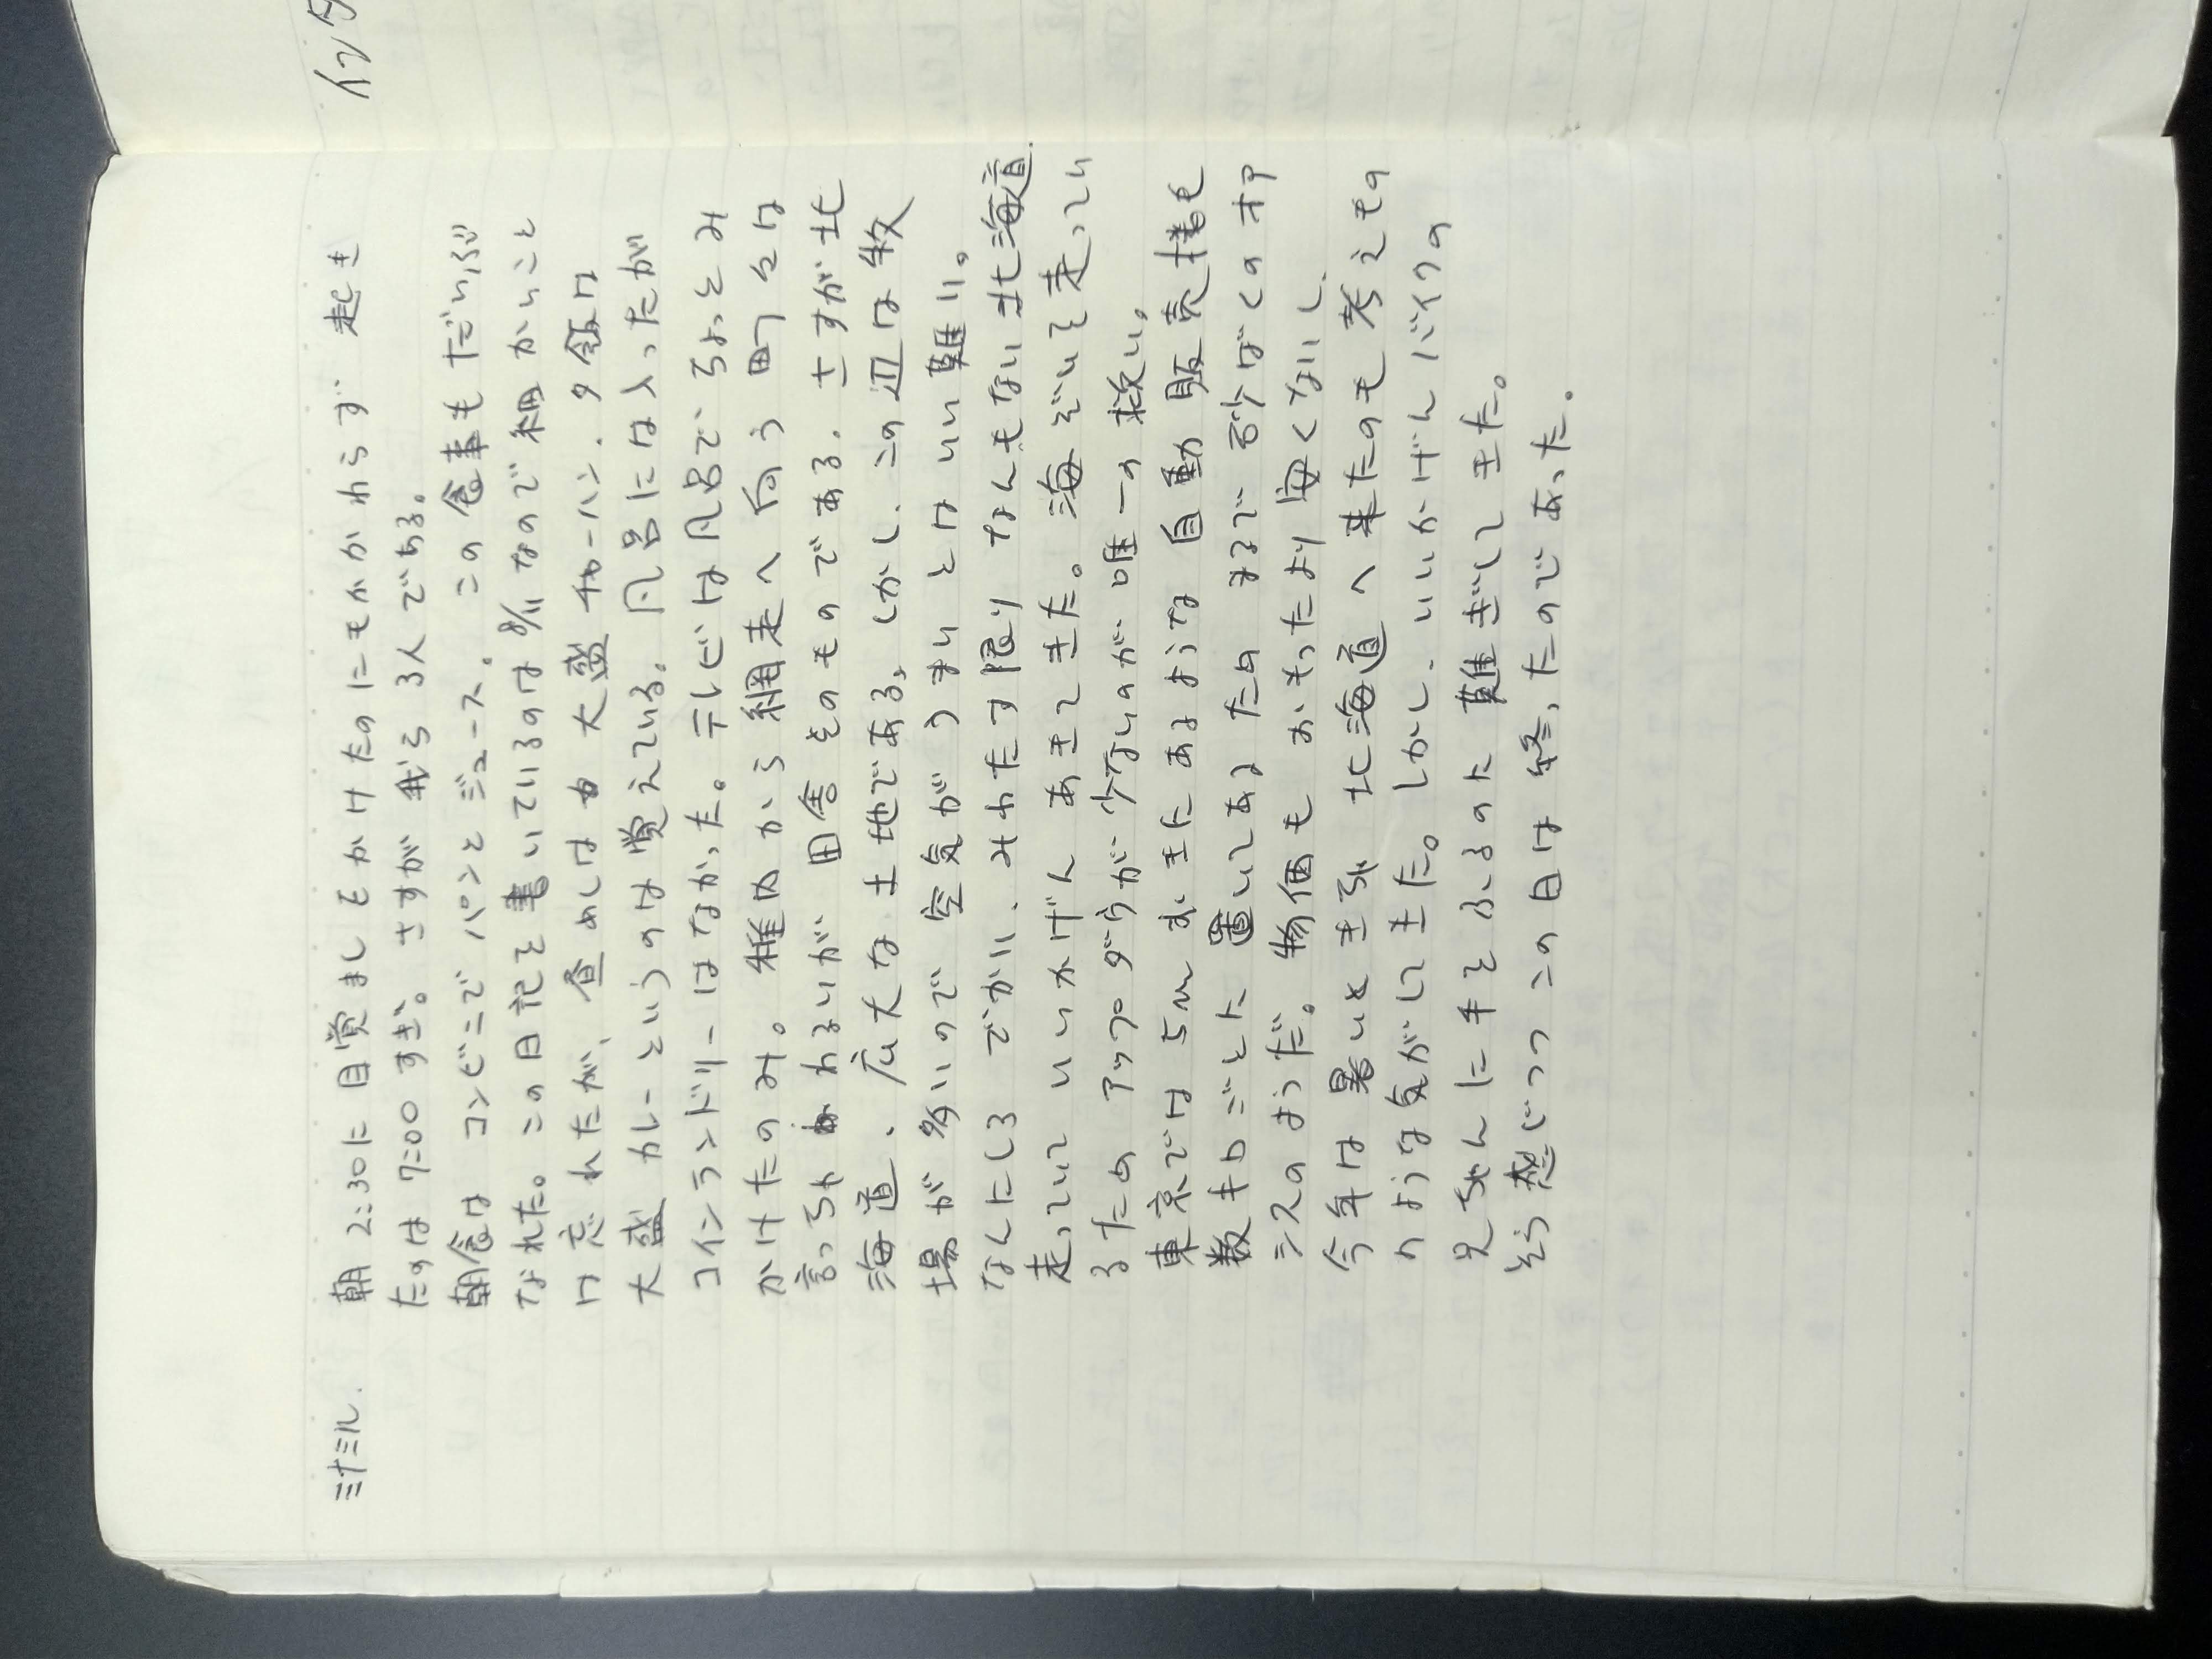 ミナミル. 朝2:30に目覚ましをかけたのにもかかわらず 起き
たのは 7:00 すぎ。さすが 我ら 3人である。
朝食は コンビニで パンと ジュース. この 食事も だいぶ
なれた。この日記を書いているのは 8/11 なので 細かいこと
は 忘れたが、昼めしは 大盛 チャーハン. 夕飯は
大盛 カレーというのは 覚えている。風呂には入ったが
コインランドリーはなかった。テレビは風呂で ちょっとみ
かけたのみ。稚内から 網走へ向う 町々は
言っちゃ わるいが 田舎 そのものである. さすが 北
海道、広大な 土地である, しかし、この辺は 牧
場が 多いので 空気が うまいとは いい難い。
なんにしろ でかい、みわたす限り なんもない 北海道.
走っていて いいかげん あきてきた。海ぞいを走ってい
るため アップダウンが 少ないのが 唯一の 救い。
東京では 5m おきに あるような 自動販売機も
数キロごとに 置いてあるため まるで 砂ばくの オア
シスのようだ。物価も おもったより 安くないし.
今年は 暑いときき 北海道へ 来たのも 考えもの
のような気がしてきた。しかし、いいかげん バイクの
兄ちゃんに 手を ふるのに 難ぎしてきた。
そう感じつつ この日は 終ったのであった.
イン